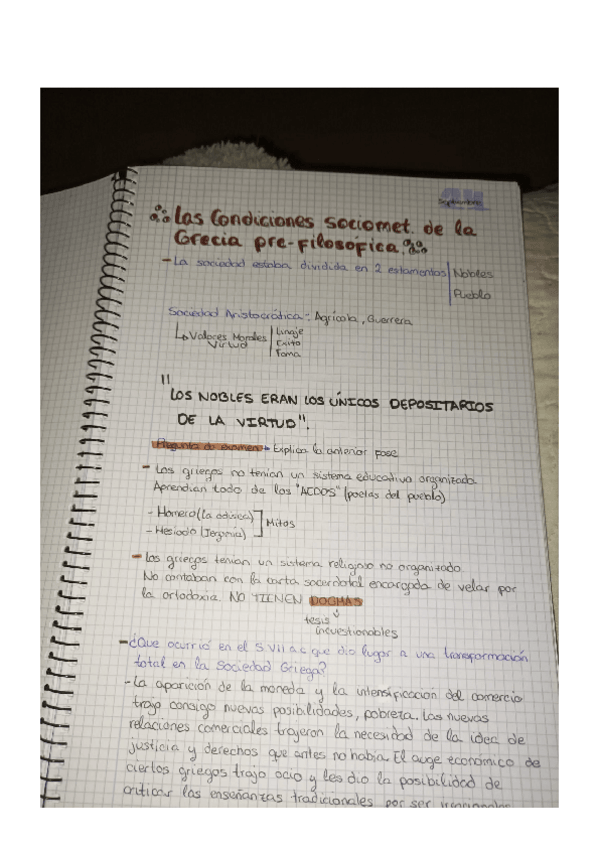 Septiembre
Las Condiciones sociomat. de la
Grecia pre-filosófica.
- La sociedad estaba dividida en 2 estamentos | Nobles
Pueblo
Sociedad Aristocrática: Agrícola, Guerrera
↳ Valores Morales | Linaje
Virtud Exito
Fama
"LOS NOBLES ERAN LOS ÚNICOS DEPOSITARIOS
DE LA VIRTUD".
Pregunta de examen → Explica la anterior frase
- Los griegos no tenían un sistema educativo organizado.
Aprendían todo de los "AEDOS" (poetas del pueblo)
- Homero (la odisea)
- Hesíodo (Teogonía) ] Mitos
- Los griegos tenían un sistema religioso no organizado.
No contaban con la casta sacerdotal encargada de velar por
la ortodoxia. NO TIENEN DOGMAS
↓
tesis
incuestionables
- ¿Que ocurrió en el S VII a.c que dio lugar a una transformación
total en la Sociedad Griega?
- La aparición de la moneda y la intensificación del comercio
trajo consigo nuevas posibilidades, pobreza. Las nuevas
relaciones comerciales trayeron la necesidad de la idea de
justicia y derechos que antes no había. El auge económico de
ciertos griegos trajo ocio y les dio la posibilidad de
criticar las enseñanzas tradicionales por ser